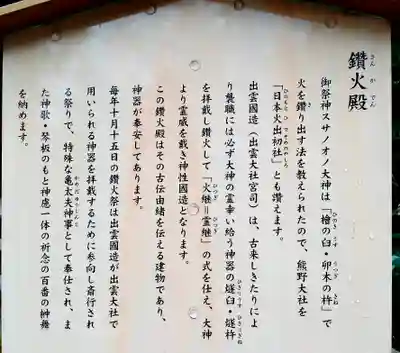 鑽火殿
さんかでん
御祭神スサノオノ大神は「檜の臼・卯木の杵」で
ひのきうす うつぎ きね
火を鑽り出す法を教えられたので、熊野大社を
「日本火出初社」とも讃えます。
ひのもとひでぞめのやしろ
出雲国造(出雲大社宮司)は、古来しきたりによ
り襲職には必ず大神の霊幸い給う神器の燧臼・燧杵
ひきりうす ひきりぎね
を拝戴し鑽火して「火継=霊継」の式を仕え、大神
ひつぎ ひつぎ
より霊威を戴き神性国造となります。
この鑽火殿はその古伝由緒を伝える建物であり、
神器が奉安してあります。
毎年十月十五日の鑽火祭は出雲国造が出雲大社で
用いられる神器を拝戴するために参向し斎行され
る祭りで、特殊な亀太夫神事として奉仕され、ま
かめだゆうしんじ
た神歌・琴板のもと神慮一体の祈念の百番の榊舞
を納めます。